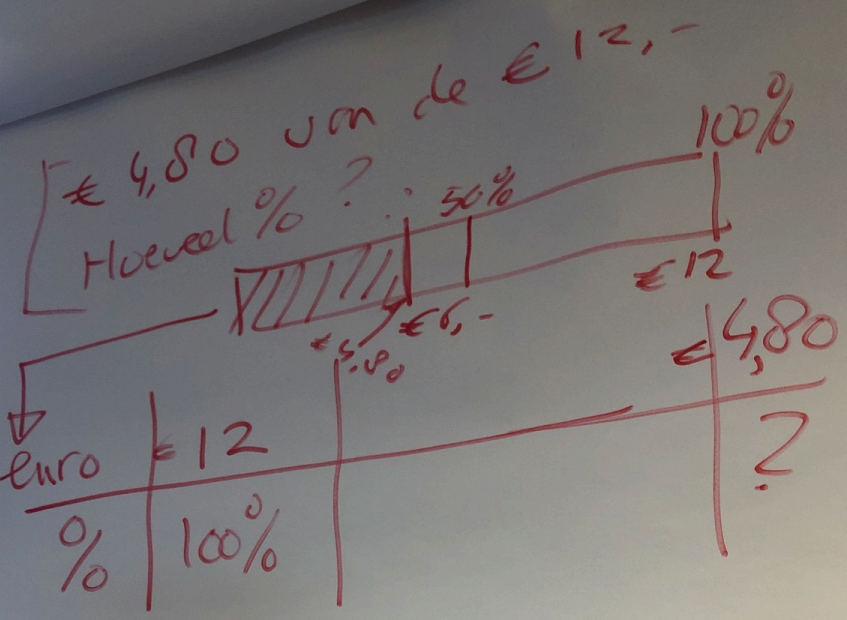 € 4,80 van de € 12,-
Hoeveel % ?
50%
100%
€ 4,80
€ 6,-
€ 12
euro € 12 € 4,80
% 100% ?